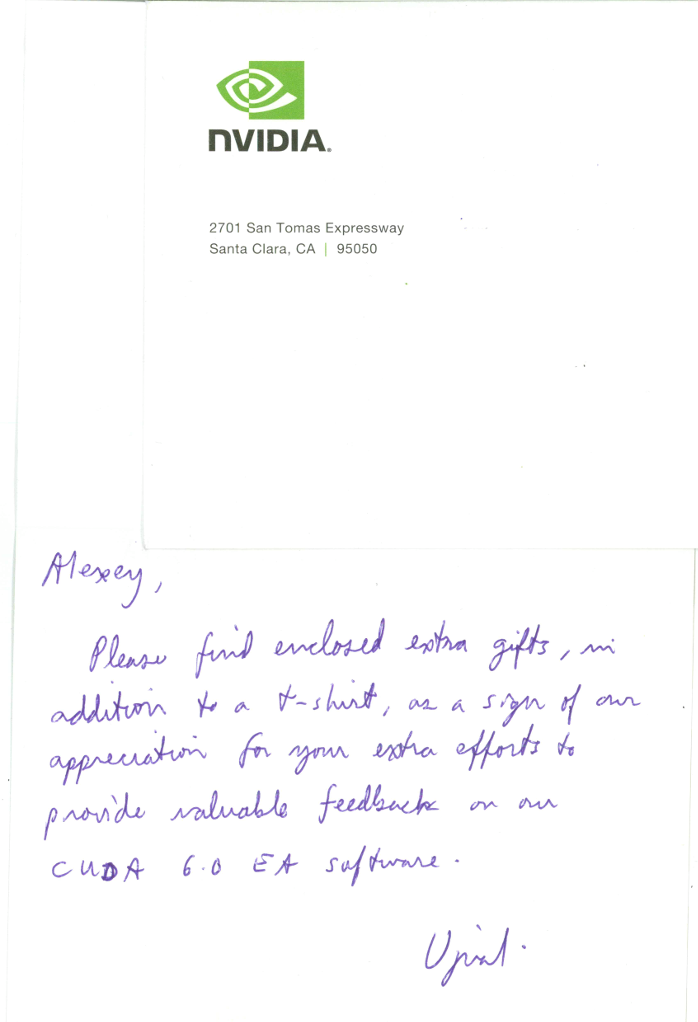 NVIDIA.
2701 San Tomas Expressway
Santa Clara, CA | 95050
Alexey,
Please find enclosed extra gifts, in
addition to a t-shirt, as a sign of our
appreciation for your extra efforts to
provide valuable feedback on our
CUDA 6.0 EA software.